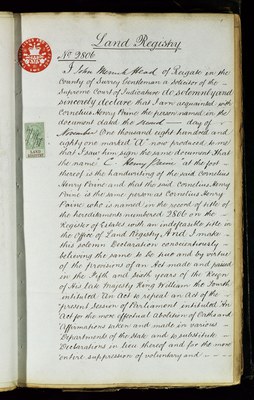 Land Registry
No 9806
I John Merrick Head of Reigate in the
County of Surrey Gentleman a Solicitor of the
Supreme Court of Judicature do solemnly and
sincerely declare that I am acquainted with
Cornelius Henry Paine the person named in the
document dated the Second day of
November One thousand eight hundred and
eighty one marked A now produced to me
that I saw him sign the same document that
the name C Henry Paine at the foot
thereof is the handwriting of the said Cornelius
Henry Paine and that the said Cornelius Henry
Paine is the same person as Cornelius Henry
Paine who is named in the record of title of
the hereditaments numbered 9806 on the
Register of Estates with an indefeasible title in
the Office of Land Registry, And I make
this solemn Declaration conscientiously
believing the same to be true and by virtue
of the provisions of an Act made and passed
in the Fifth and Sixth years of the Reign
of His late Majesty King William the Fourth
intituled An Act to repeal an Act of the
present Session of Parliament intituled An
Act for the more effectual abolition of Oaths and
Affirmations taken and made in various
Departments of the State and to substitute
Declarations in lieu thereof and for the more
entire suppression of voluntary and